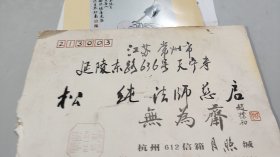 213003
江苏常州市
延陵东路636号天宁寺
松纯法师慈启
無為齋
杭州612信箱月照缄